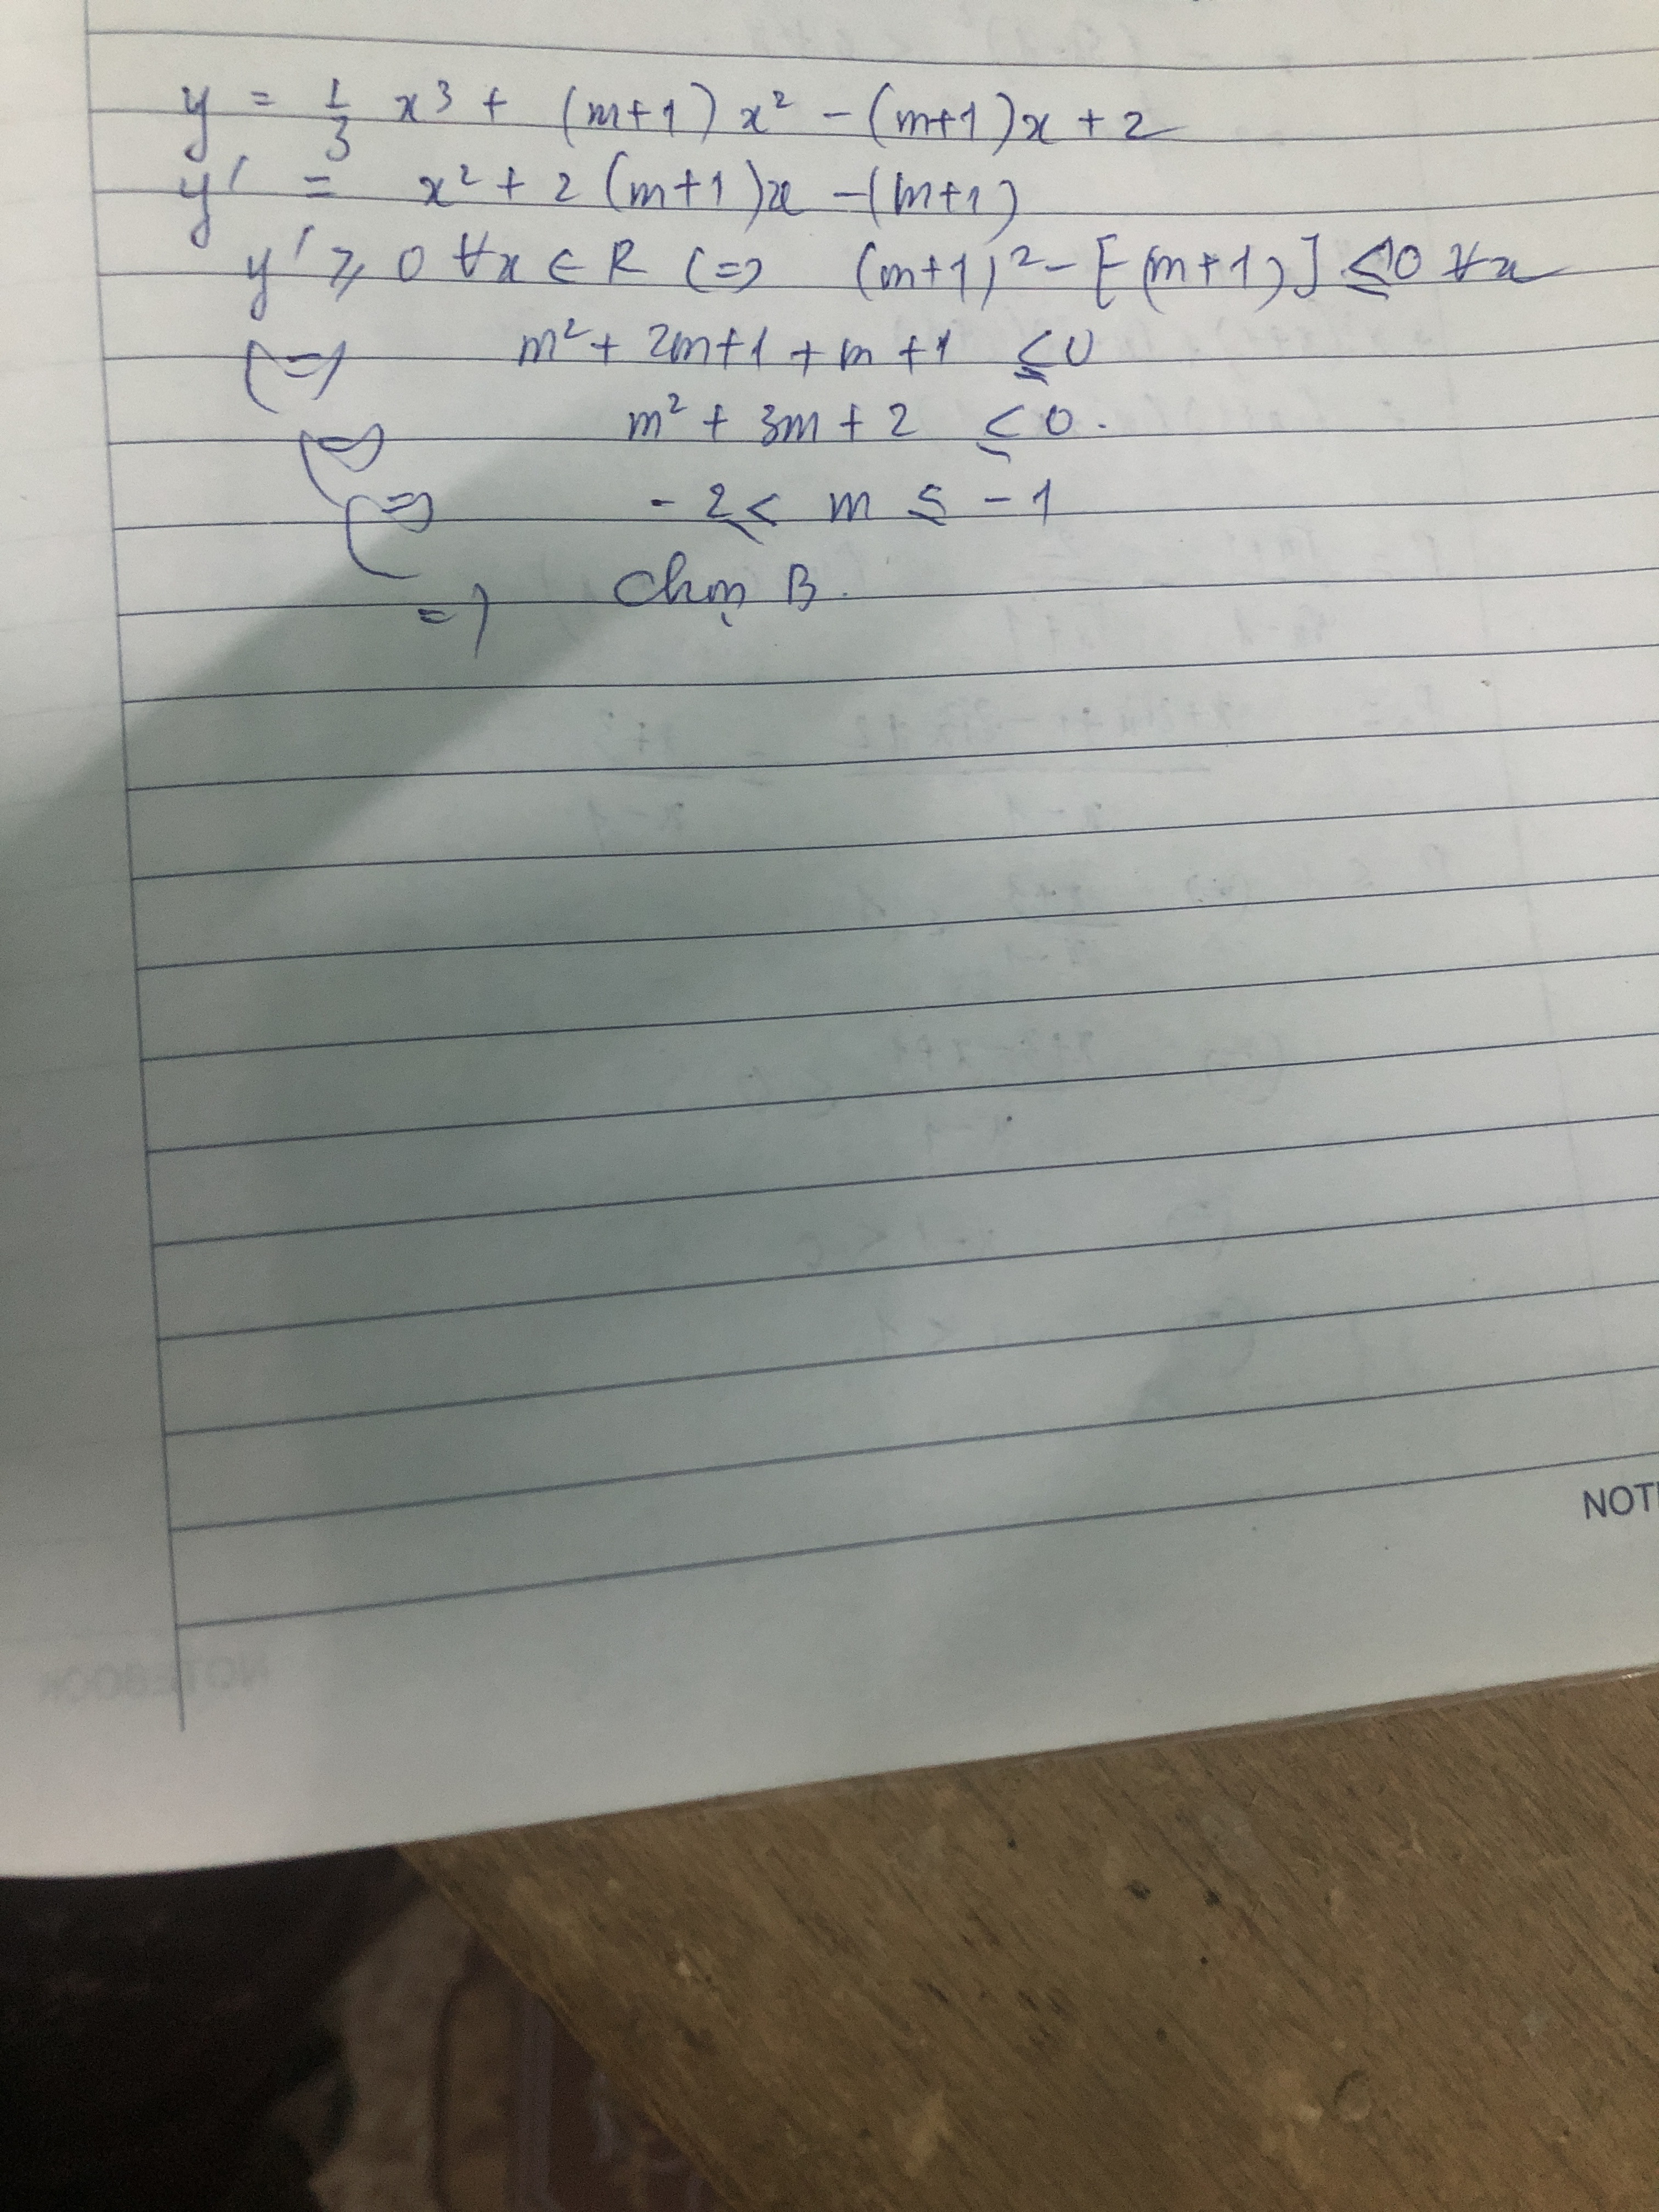 y = 1/3 x³ + (m+1) x² - (m+1)x + 2
y' = x² + 2 (m+1)x - (m+1)
y' ⩾ 0 ∀x ∈ R (=> (m+1)² - [-(m+1)] ≤ 0 ∀x
(=) m² + 2m+1 + m + 1 ≤ 0
(=) m² + 3m + 2 ≤ 0.
(=) -2 ≤ m ≤ -1
=) Chọn B.
NOT
NOTEBOOK